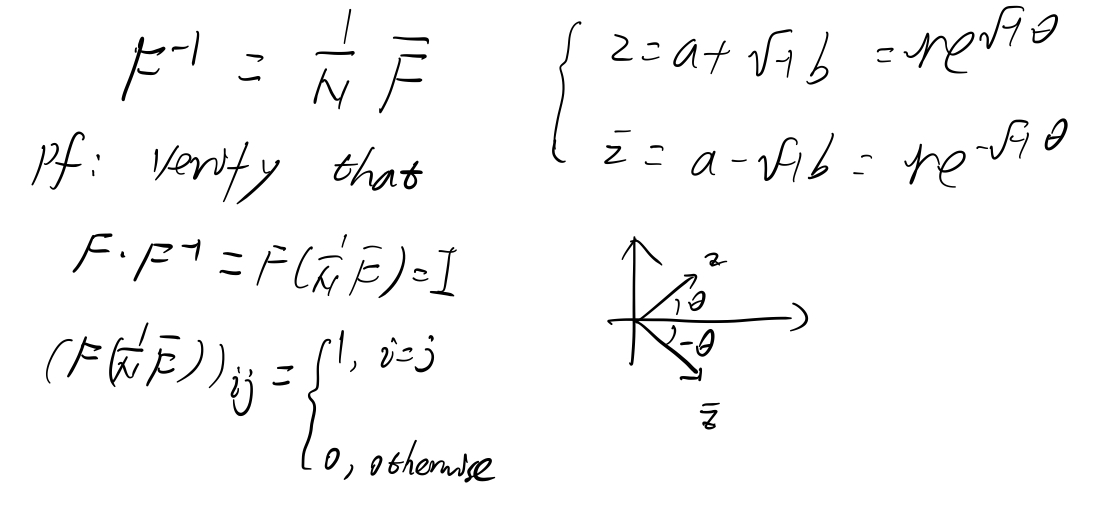 F⁻¹ = 1/N F̄
pf: verify that
F·F⁻¹ = F(1/N F̄) = I
(F(1/N F̄))ᵢⱼ = { 1, i=j
0, otherwise
{ z = a + √-1 b = re^(√-1 θ)
z̄ = a - √-1 b = re^(-√-1 θ)
z
θ
-θ
z̄